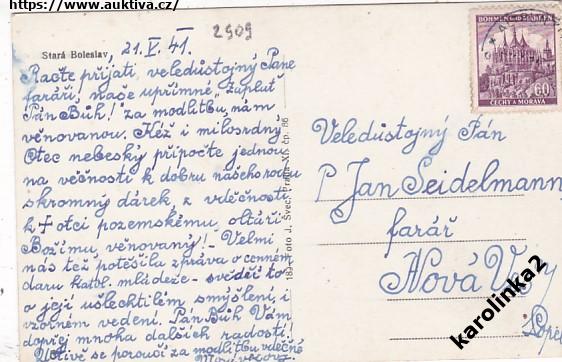 https://www.auktiva.cz/
2909
Stará Boleslav, 21.V.41.
Račte přijati, veledůstojný Pane
faráři, naše upřímné „Zaplať
Pán Bůh!" za modlitbu nám
věnovanou. Kéž i milosrdný
Otec nebeský připočte jednou
na věčnosti k dobru našeho rodu
skromný dárek, z vděčnosti
k + otci pozemskému, oltáři
Božímu věnovaný! - Velmi
nás též potěšila zpráva o cenném
daru katol. mládeže - svědčí to
o její ušlechtilém smýšlení, i
vzorném vedení. Pán Bůh Vám
dopřej mnoha dalších radostí!
Uctivě se poroučí za modlitbu vděčné
Foto J. Švec, Praha XI. čp. 86
BÖHMEN und MÄHREN
60
ČECHY a MORAVA
Veledůstojný Pán
P Jan Seidelmann,
farář
Nová Ves
karolinka2